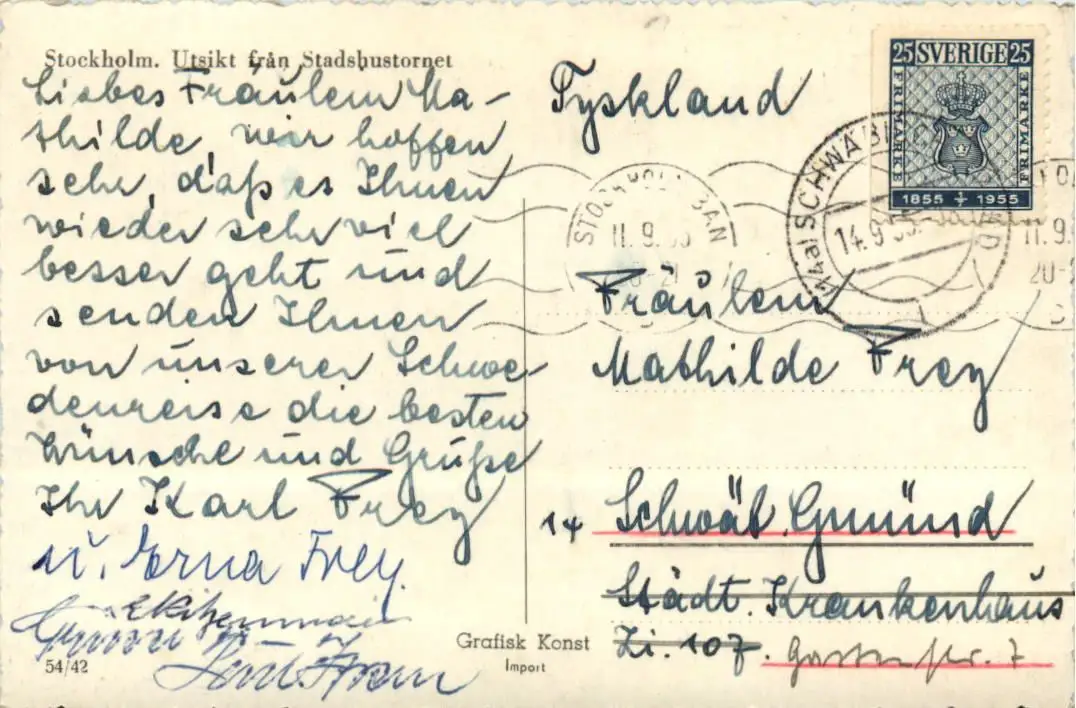 Stockholm. Utsikt från Stadshustornet
Liebes Fräulein Ma-
thilde, wir hoffen
sehr, daß es Ihnen
wieder sehr viel
besser geht und
senden Ihnen
von unserer Schwe-
denreise die besten
Wünsche und Grüße
Ihr Karl Frey
u. Erna Frey.
54/42
Grafisk Konst
Import
Tyskland
25 SVERIGE 25
FRIMÄRKE
FRIMÄRKE
1855 1955
STOCKHOLM BAN
11.9.55
SCHWÄBISCH GMÜND
14.9.55
11.9.
20-2
Fräulein
Mathilde Frey
14 Schwäb. Gmünd
Städt. Krankenhaus
Zi. 107. Gartenstr. 7